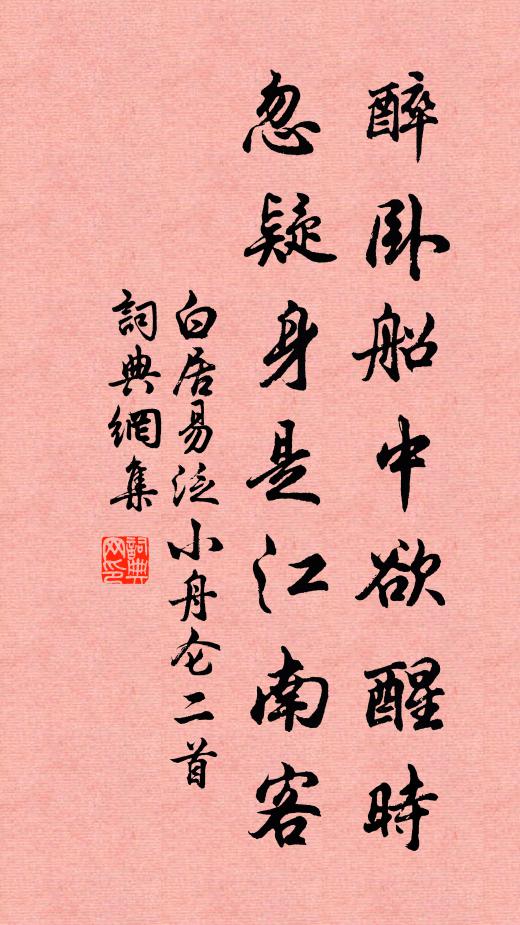 醉卧船中欲醒時
忽疑身是江南客
白居易泛小舟仑二首
詞典網集
詞典
网印